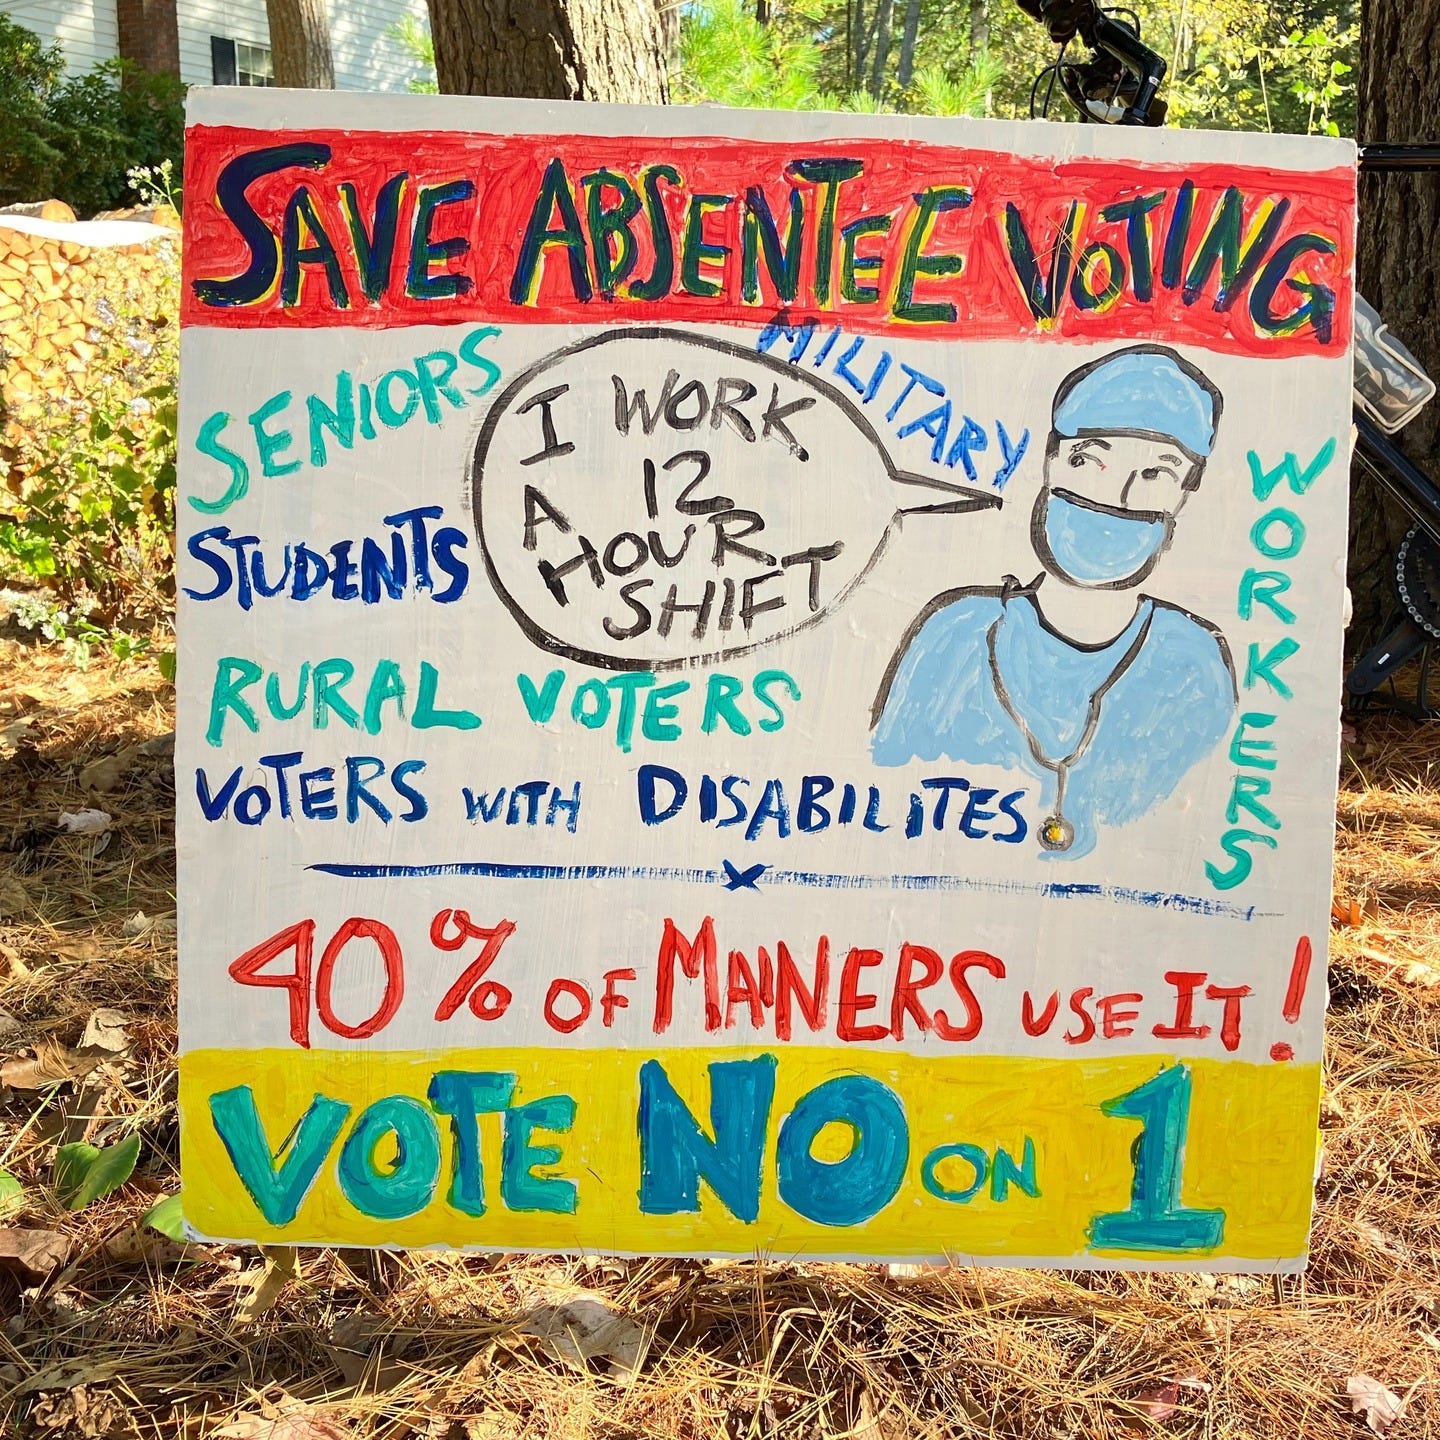 SAVE ABSENTEE VOTING
SENIORS
MILITARY
I WORK
A 12
HOUR
SHIFT
WORKERS
STUDENTS
RURAL VOTERS
VOTERS WITH DISABILITES
40% OF MAINERS USE IT!
VOTE NO ON 1